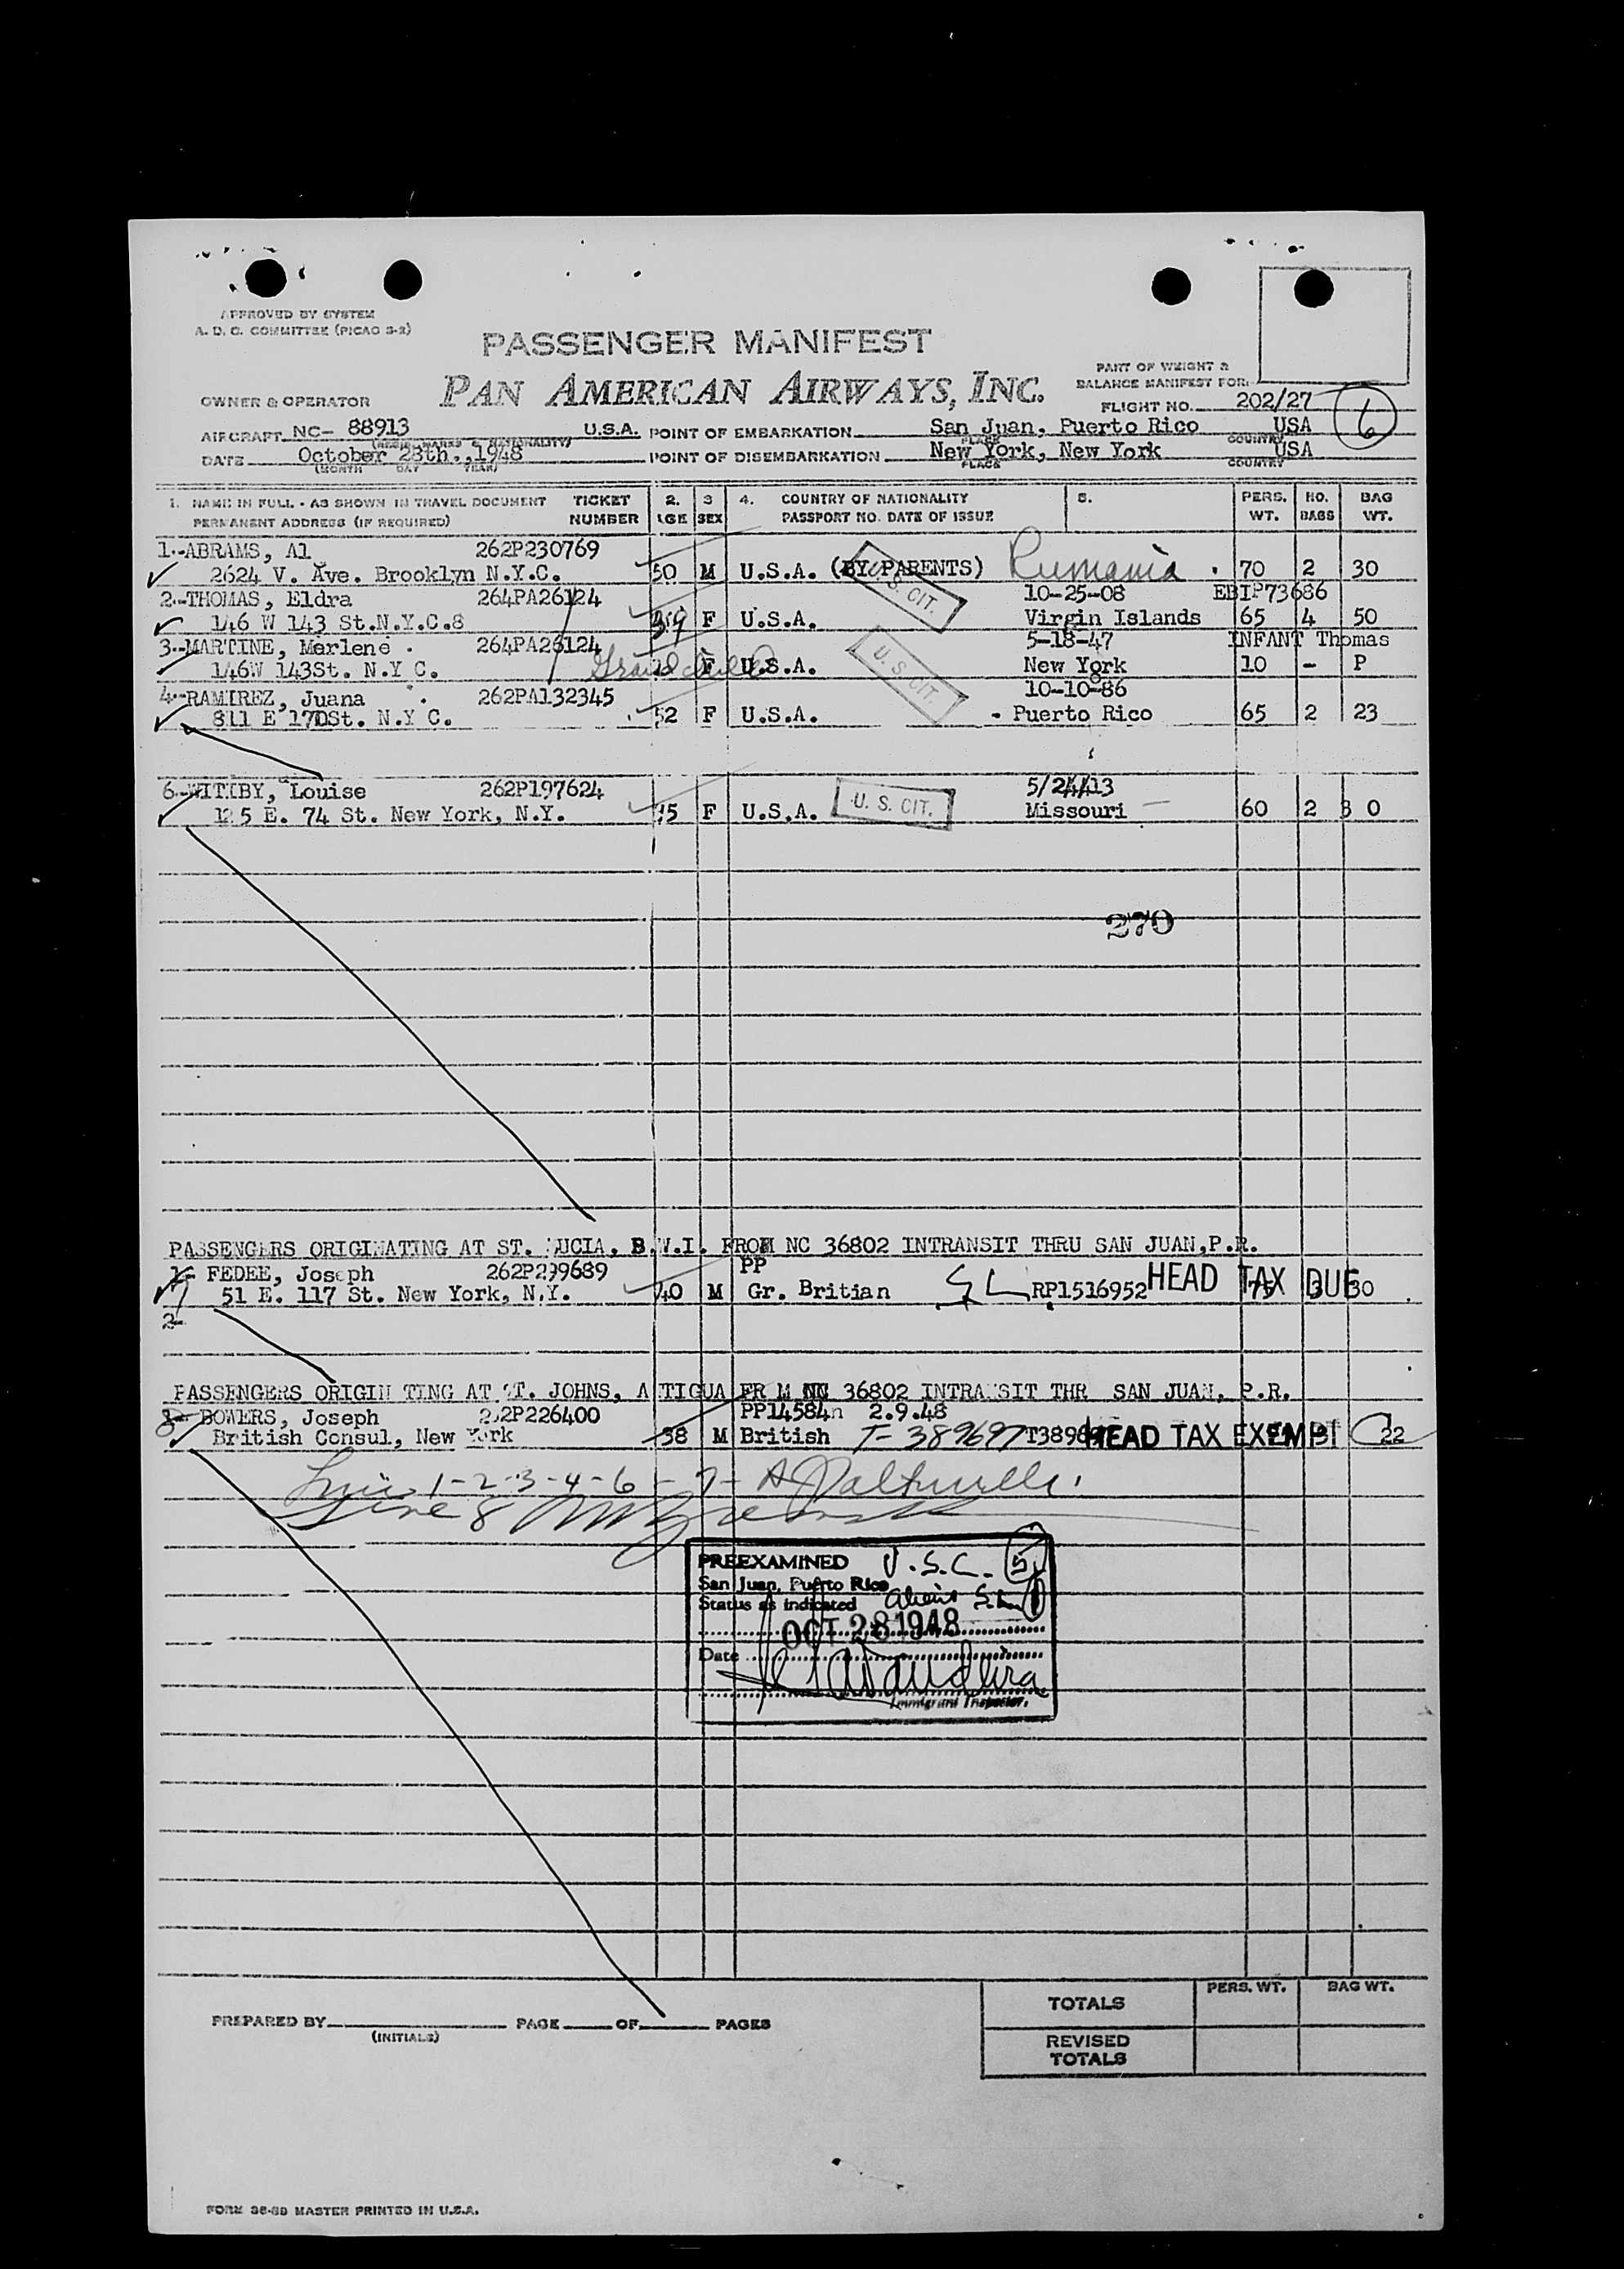 APPROVED BY SYSTEM
A. D. C. COMMITTEE (PICAO 3-2)
PASSENGER MANIFEST
PAN AMERICAN AIRWAYS, INC.
PART OF WEIGHT &
BALANCE MANIFEST FOR:
OWNER & OPERATOR
FLIGHT NO. 202/27
6
AIRCRAFT NC- 88913 U.S.A. POINT OF EMBARKATION San Juan, Puerto Rico USA
(REGIS. MARKS & NATIONALITY) PLACE COUNTRY
DATE October 28th.,1948 POINT OF DISEMBARKATION New York, New York USA
(MONTH DAY YEAR) PLACE COUNTRY
1. NAME IN FULL - AS SHOWN IN TRAVEL DOCUMENT TICKET 2. 3 4. COUNTRY OF NATIONALITY 5. PERS. NO. BAG
PERMANENT ADDRESS (IF REQUIRED) NUMBER AGE SEX PASSPORT NO. DATE OF ISSUE WT. BAGS WT.
1.-ABRAMS, Al 262P230769
2624 V. Ave. Brooklyn N.Y.C. 50 M U.S.A. (BY PARENTS) Rumania 70 2 30
U. S. CIT.
2.-THOMAS, Eldra 264PA26124 10-25-08 EBIP73686
146 W 143 St.N.Y.C.8 39 F U.S.A. Virgin Islands 65 4 50
3.-MARTINE, Marlene 264PA26124 5-18-47 INFANT Thomas
146W 143St. N.Y C. Grandchild F U.S.A. New York 10 - P
U. S. CIT.
4.-RAMIREZ, Juana 262PA132345 10-10-86
811 E 170St. N.Y C. 52 F U.S.A. - Puerto Rico 65 2 23
6.-WITTBY, Louise 262P197624 5/24/13
125 E. 74 St. New York, N.Y. 35 F U.S.A. U. S. CIT. Missouri 60 2 30
270
PASSENGERS ORIGINATING AT ST. LUCIA, B.W.I. FROM NC 36802 INTRANSIT THRU SAN JUAN,P.R.
1- FEDEE, Joseph 262P299689 PP
7 51 E. 117 St. New York, N.Y. 40 M Gr. Britian SL RP1516952 HEAD TAX DUE 75 3 30
2-
PASSENGERS ORIGIN TING AT ST. JOHNS, A TIGUA FR M NC 36802 INTRANSIT THR SAN JUAN, P.R.
8 BOWERS, Joseph 262P226400 PP14584n 2.9.48
British Consul, New York 38 M British T-389697 T3896 HEAD TAX EXEMPT 22
Line 1-2-3-4-6-7-
Line 8
PREEXAMINED U.S.C. 5
San Juan, Puerto Rico
Status as indicated aliens 1
OCT 28 1948
Date
Immigrant Inspector.
TOTALS PERS. WT. BAG WT.
REVISED
TOTALS
PREPARED BY PAGE OF PAGES
(INITIALS)
FORM 36-88 MASTER PRINTED IN U.S.A.